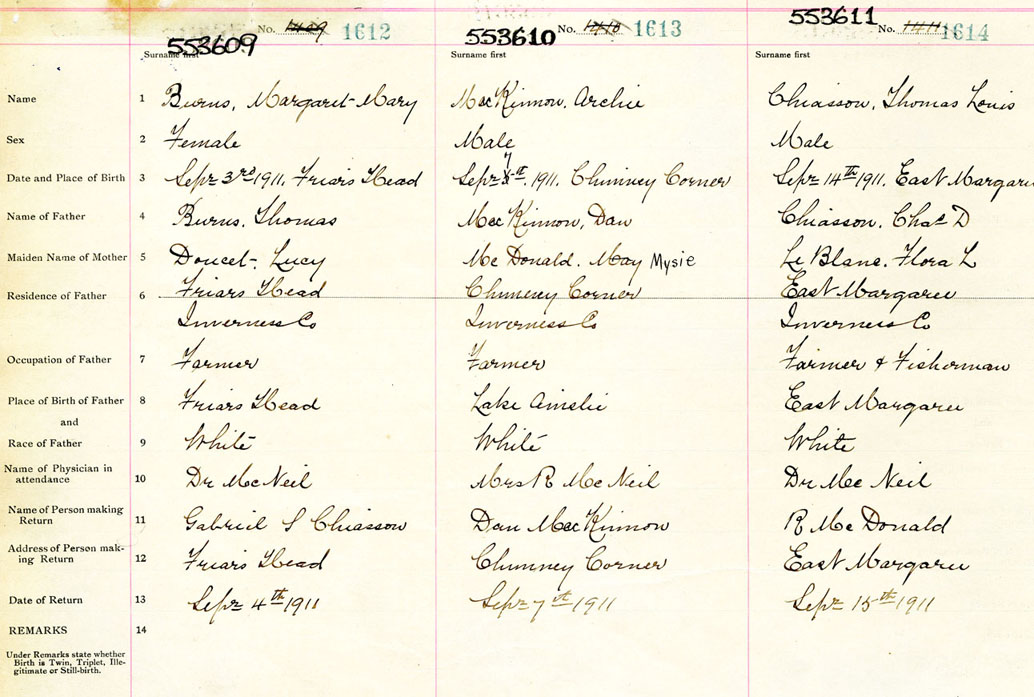 553609 No. 1409 1612 553610 No. 1410 1613 553611 No. 1411 1614
Surname first Surname first Surname first
Name 1 Burns, Margaret Mary MacKinnon, Archie Chiasson, Thomas Louis
Sex 2 Female Male Male
Date and Place of Birth 3 Sept 3rd 1911. Friars Head Sept 7th 1911. Chimney Corner Sept 14th 1911. East Margaree
Name of Father 4 Burns, Thomas MacKinnon, Dan Chiasson, Chas D
Maiden Name of Mother 5 Doucet, Lucy Mc Donald. May Mysie Le Blanc. Flora L
Residence of Father 6 Friars Head Chimney Corner East Margaree
Inverness Co Inverness Co Inverness Co
Occupation of Father 7 Farmer Farmer Farmer & Fisherman
Place of Birth of Father 8 Friars Head Lake Ainslie East Margaree
and
Race of Father 9 White White White
Name of Physician in
attendance 10 Dr MacNeil Mrs R McNeil Dr Mc Neil
Name of Person making
Return 11 Gabriel S Chiasson Dan MacKinnon R McDonald
Address of Person mak-
ing Return 12 Friars Head Chimney Corner East Margaree
Date of Return 13 Sept 4th 1911 Sept 7th 1911 Sept 15th 1911
REMARKS 14
Under Remarks state whether
Birth is Twin, Triplet, Ille-
gitimate or Still-birth.